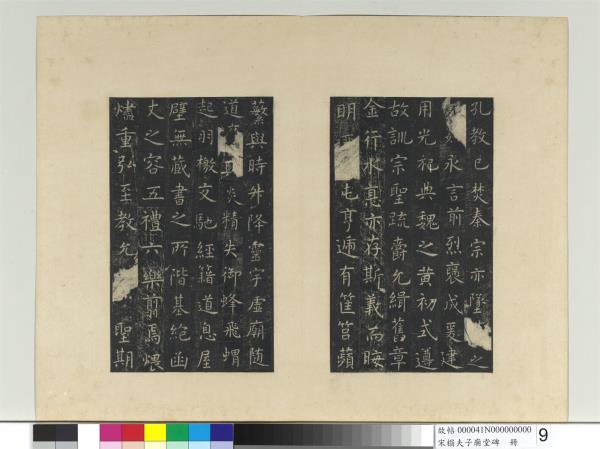 孔教已焚秦宗亦墜之
永言前烈褒成爰建
用光祀典魏之黃初式遵
故訓宗聖疏爵允緝舊章
金行水悳亦存斯義而晦
明屯亨遞有筐筥蘋
蘩與時升降靈宇虛廟隨
道炎精失御蜂飛蝟
起羽檄交馳經籍道息屋
壁無藏書之所階基絕函
丈之容五禮六樂翦焉煨
燼重弘至教允聖期
故帖 000041N000000000
宋搨夫子廟堂碑 冊
9